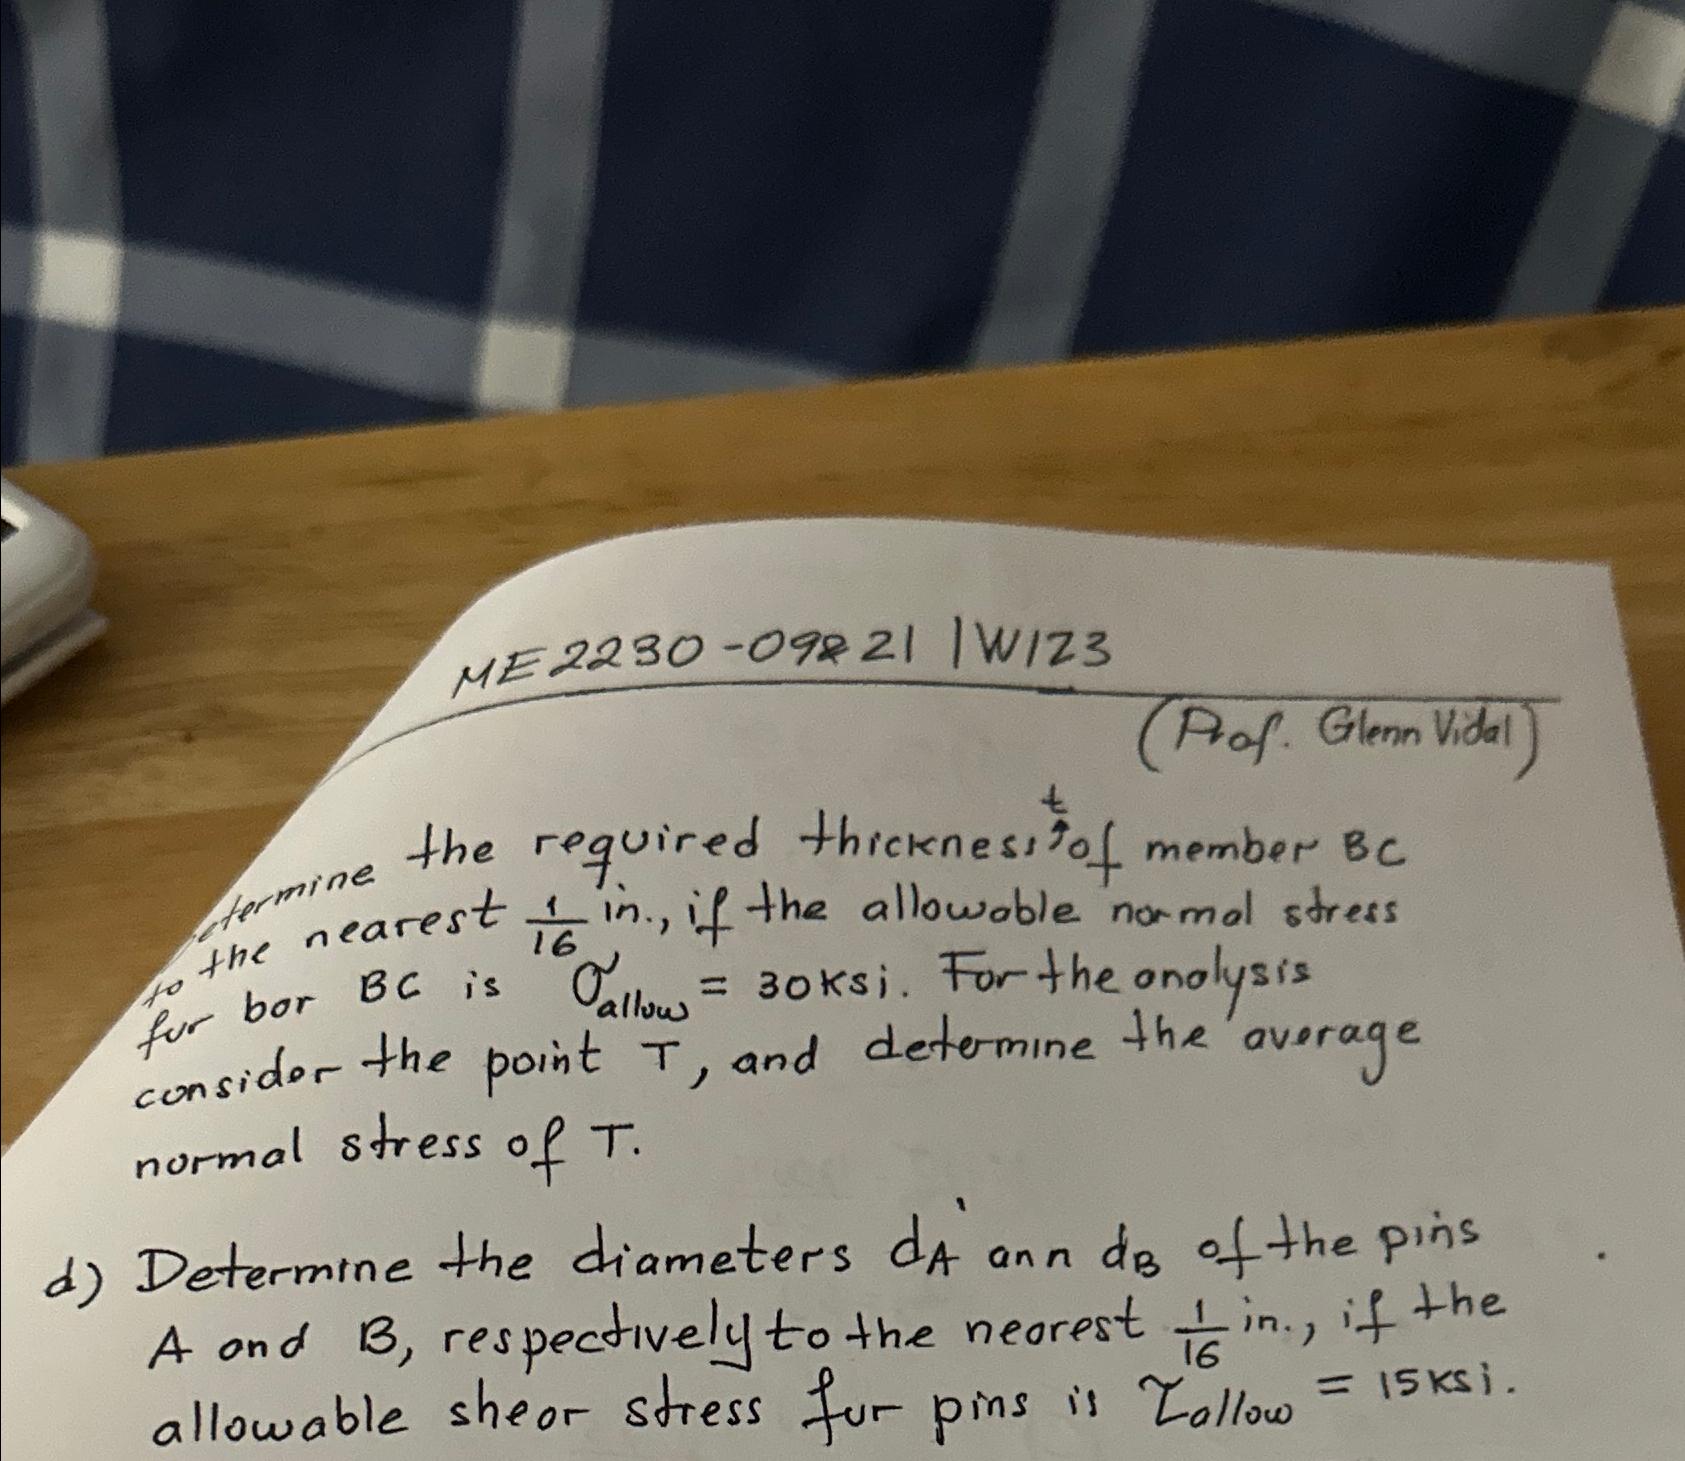 ME2230-09221 | W123
(Prof. Glenn Vidal)
etermine the required thickness t of member BC
to the nearest 1/16 in., if the allowable normal stress
fur bar BC is σallow = 30ksi. For the analysis
consider the point T, and determine the average
normal stress of T.
d) Determine the diameters dA ann dB of the pins
A and B, respectively to the nearest 1/16 in., if the
allowable shear stress fur pins is τallow = 15ksi.